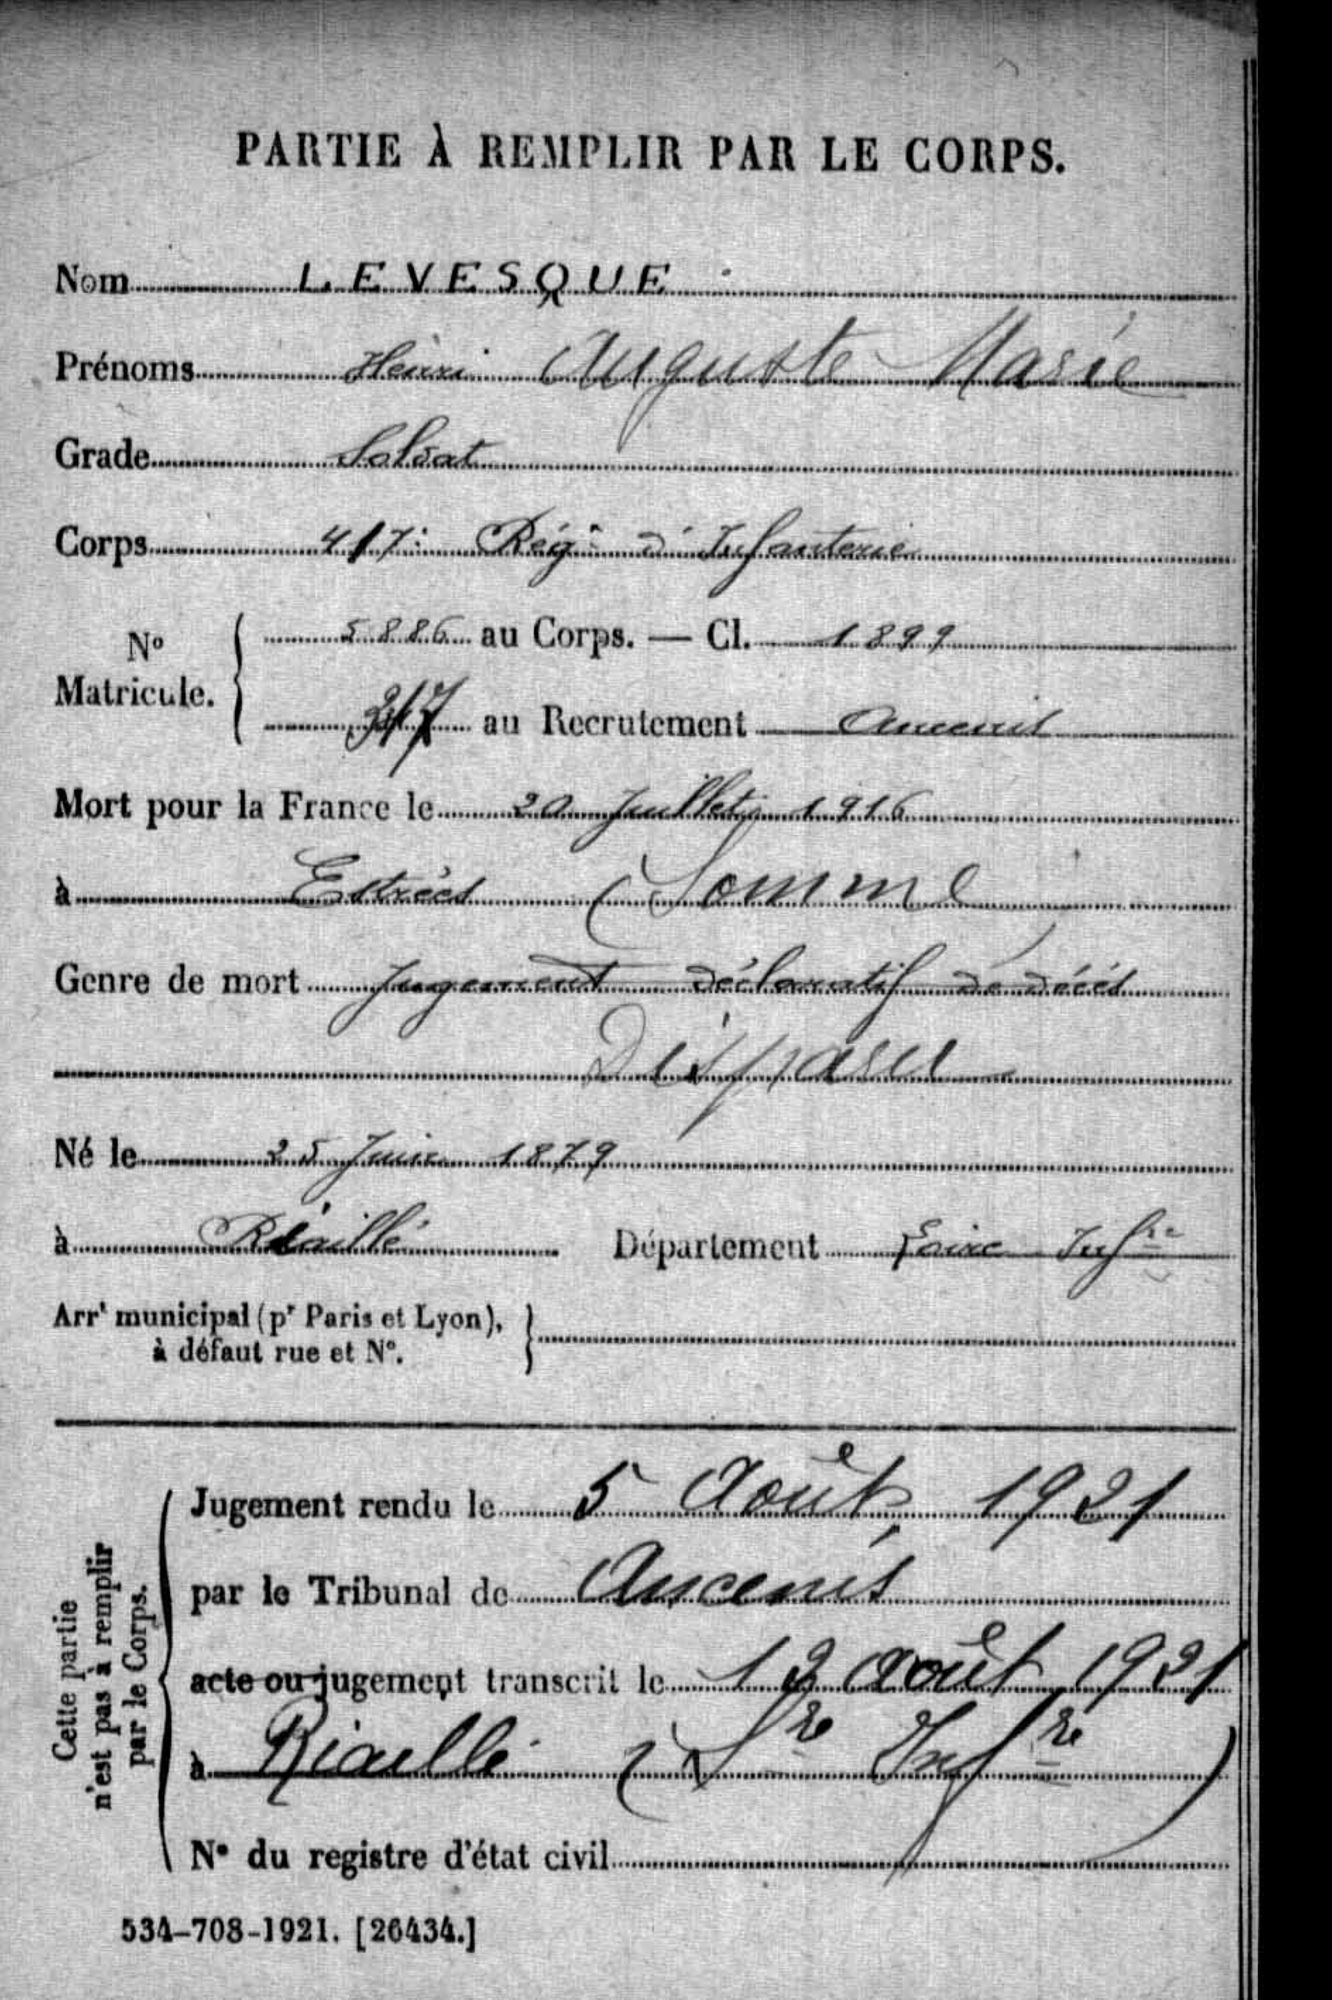 PARTIE À REMPLIR PAR LE CORPS.
Nom LEVESQUE
Prénoms Henri Auguste Marie
Grade Soldat
Corps 417e Régt d'Infanterie
No Matricule. 5886 au Corps. — Cl. 1899
au Recrutement Ancenis
Mort pour la France le 20 Juillet 1916
à Estrées (Somme)
Genre de mort Jugement déclaratif de décès
Disparu
Né le 25 Juin 1879
à Riaillé Département Loire Infre
Arrt municipal (pr Paris et Lyon),
à défaut rue et No.
Cette partie
n'est pas à remplir
par le Corps.
Jugement rendu le 5 Août 1921
par le Tribunal de Ancenis
acte ou jugement transcrit le 12 Août 1921
à Riaillé (Lre Infre)
No du registre d'état civil
534-708-1921. [26434.]